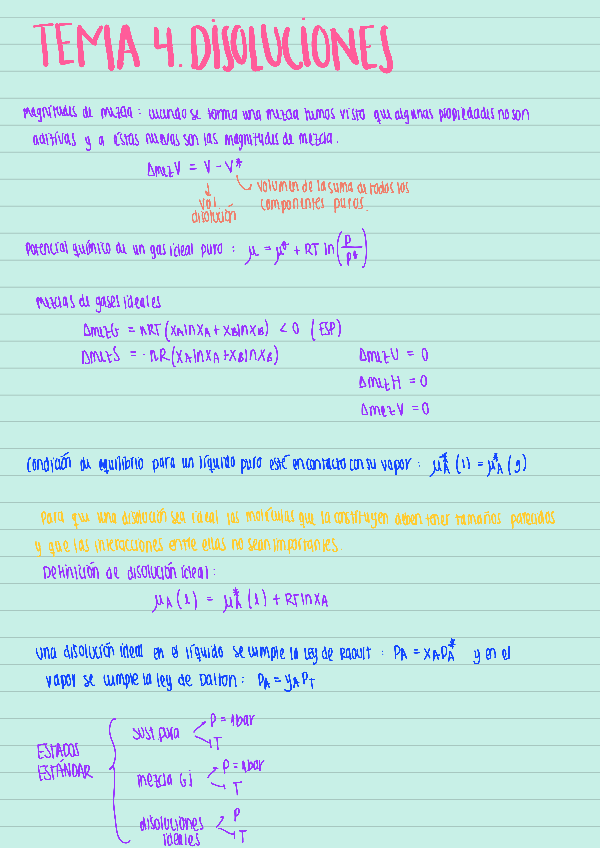 TEMA 4. DISOLUCIONES
Magnitudes de mezcla: cuando se forma una mezcla hemos visto que algunas propiedades no son
aditivas y a estas nuevas son las magnitudes de mezcla.
ΔmezV = V - V*
vol. disolución
volumen de la suma de todos los
componentes puros.
Potencial químico de un gas ideal puro: μ = μ° + RT ln(P/P°)
Mezclas de gases ideales
ΔmezG = nRT(xA ln xA + xB ln xB) < 0 (ESP)
ΔmezS = -nR(xA ln xA + xB ln xB)
ΔmezU = 0
ΔmezH = 0
ΔmezV = 0
Condición de equilibrio para un líquido puro esté en contacto con su vapor: μ*A(l) = μ*A(g)
Para que una disolución sea ideal las moléculas que la constituyen deben tener tamaños parecidos
y que las interacciones entre ellas no sean importantes
Definición de disolución ideal:
μA(l) = μ*A(l) + RT ln xA
una disolución ideal en el líquido se cumple la ley de Raoult: PA = xA PA* y en el
vapor se cumple la ley de Dalton: PA = yA PT
ESTADOS
ESTÁNDAR
sust pura
P = 1bar
T
mezcla Gi
P = 1bar
T
disoluciones
ideales
P
T